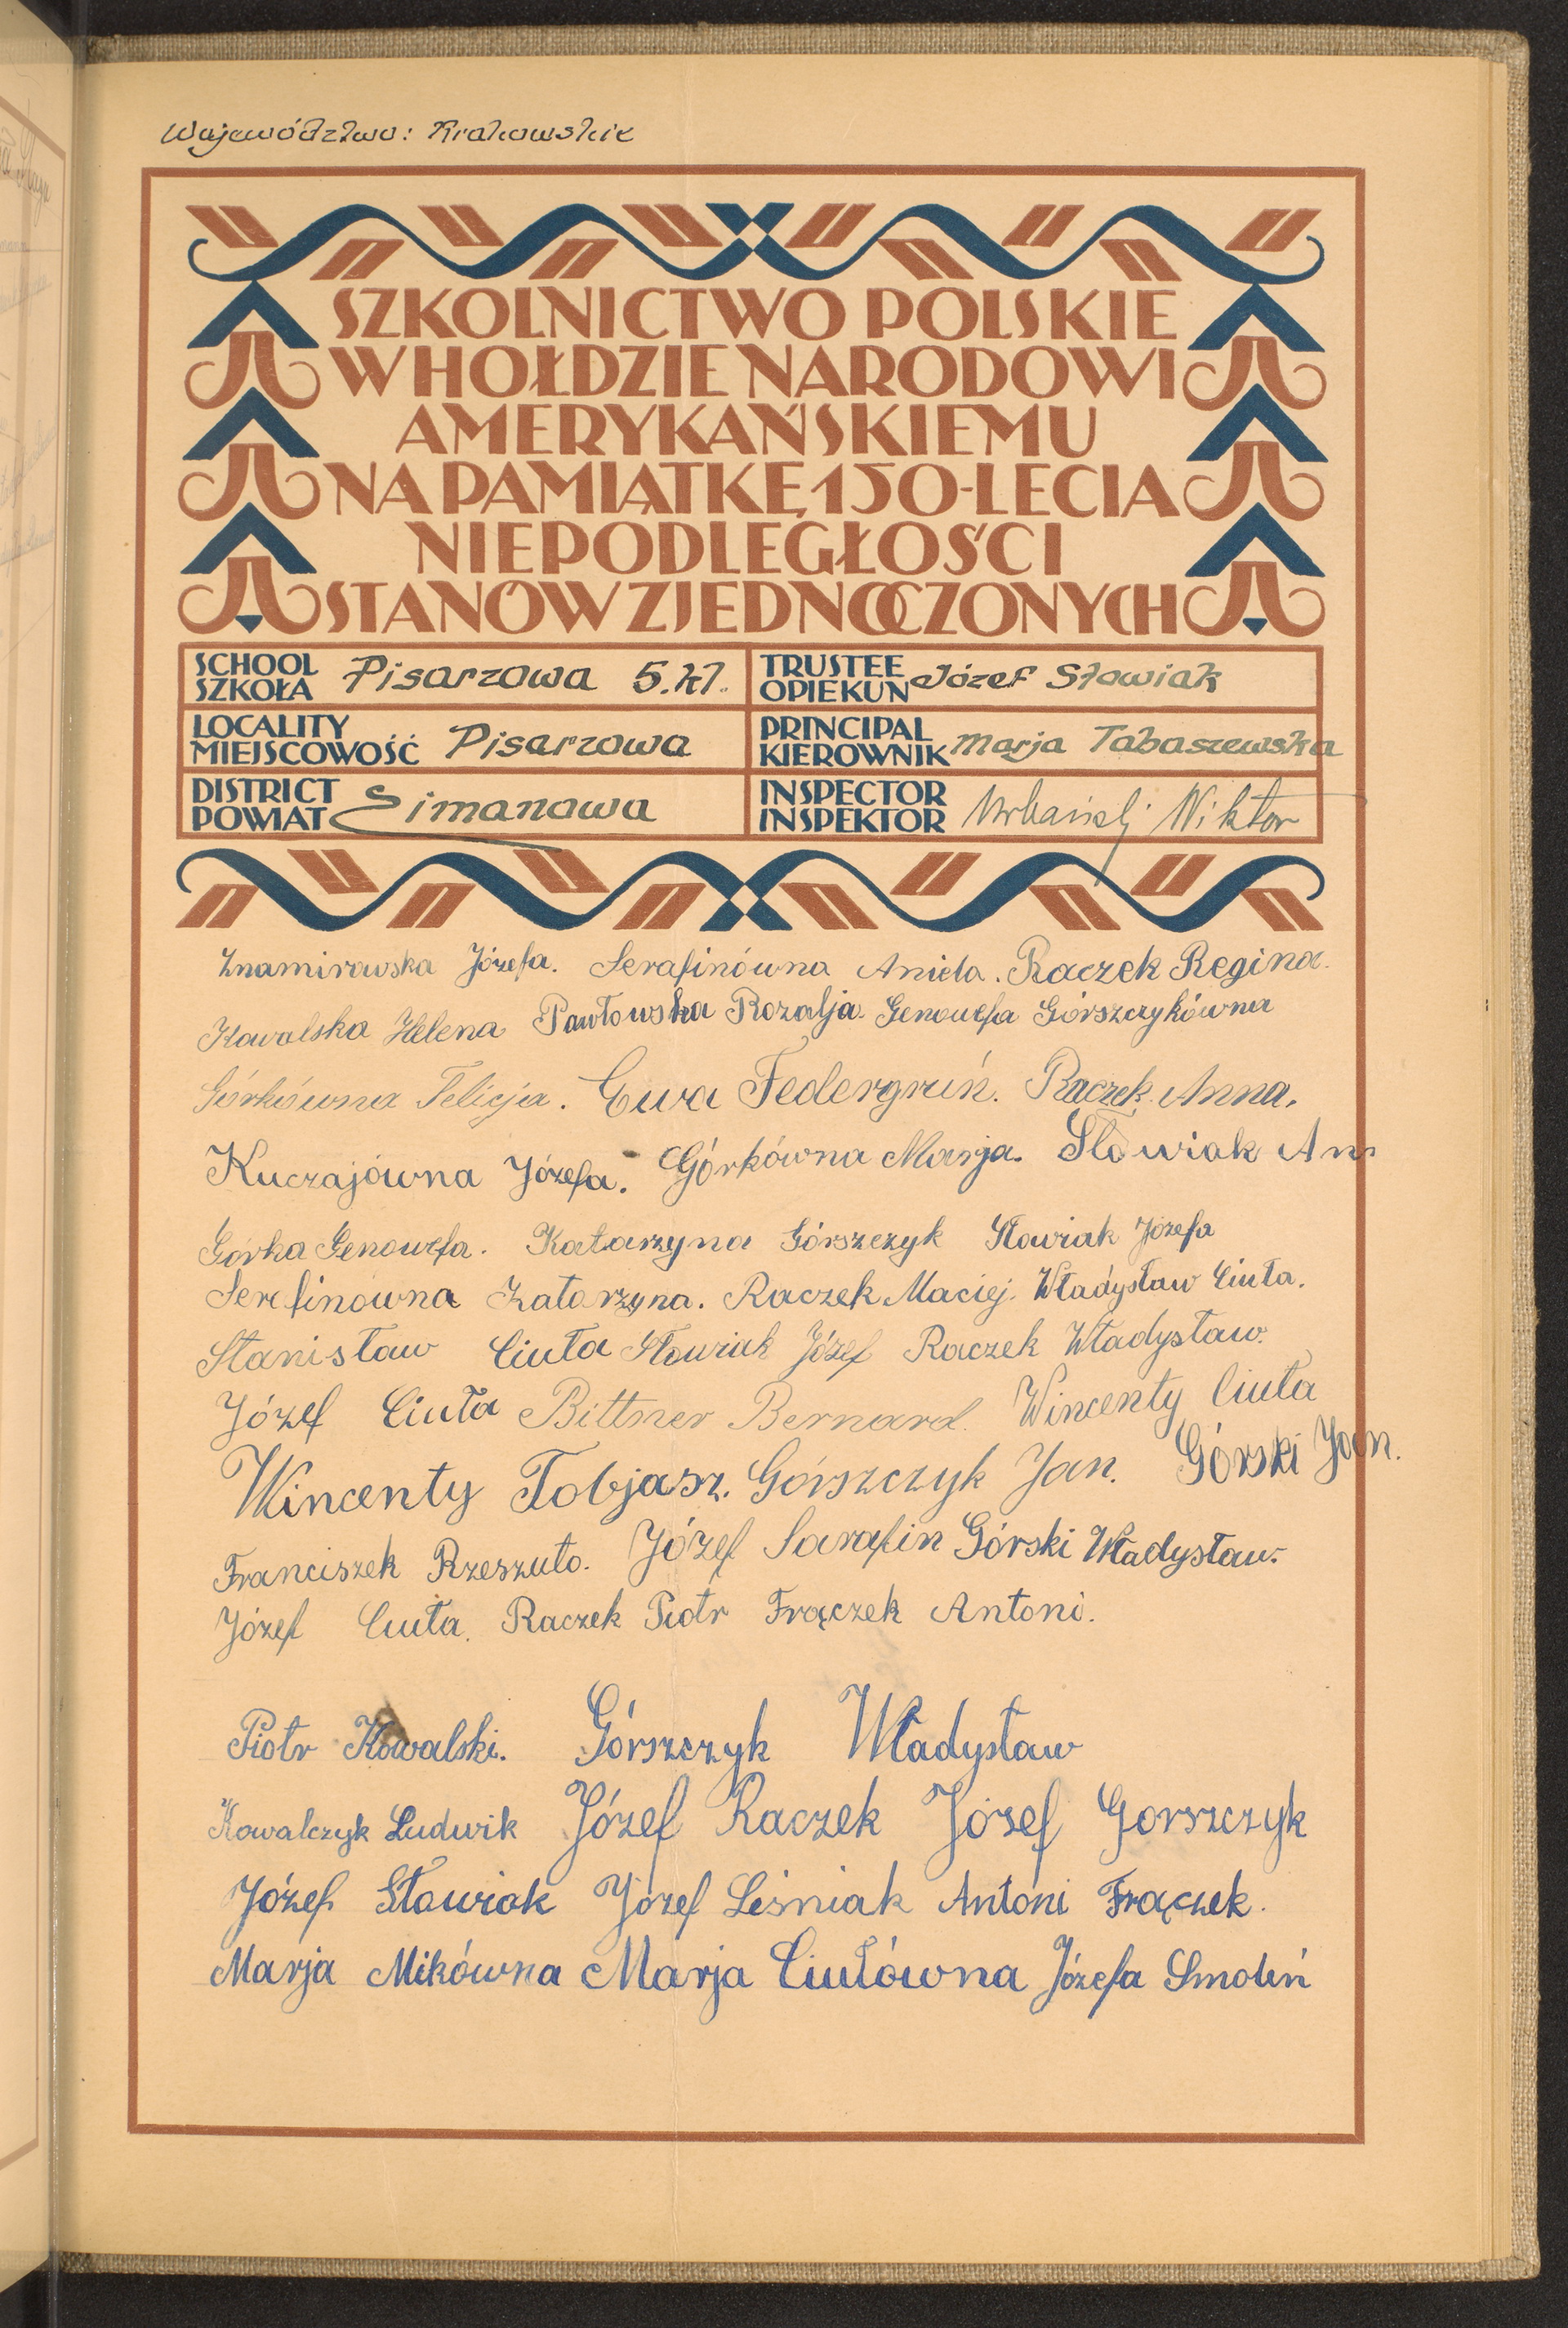 Województwo: Krakowskie
SZKOLNICTWO POLSKIE
W HOŁDZIE NARODOWI
AMERYKAŃSKIEMU
NA PAMIĄTKĘ 150-LECIA
NIEPODLEGŁOŚCI
STANÓW ZJEDNOCZONYCH
SCHOOL SZKOŁA Pisarzowa 5.kl.
TRUSTEE OPIEKUN Józef Słowiak
LOCALITY MIEJSCOWOŚĆ Pisarzowa
PRINCIPAL KIEROWNIK Marja Tabaszewska
DISTRICT POWIAT Limanowa
INSPECTOR INSPEKTOR Wiktor
Znamirowska Józefa. Serafinówna Aniela. Raczek Regina.
Kowalska Helena Pawłowska Rozalja. Genowefa Górszczykówna
Górkówna Felicja. Ewa Federgrün. Raczek Anna.
Kuczajówna Józefa. Górkówna Marja. Słowiak An
Górka Genowefa. Katarzyna Górszczyk Słowiak Józefa
Serafinówna Katarzyna. Raczek Maciej. Władysław Ciuła.
Stanisław Ciuła Słowiak Józef Raczek Władysław.
Józef Ciuła Bittner Bernard. Wincenty Ciuła
Wincenty Tobjasz. Górszczyk Jan. Górski Jan.
Franciszek Rzeszuto. Józef Sarafin Górski Władysław.
Józef Ciuła. Raczek Piotr Frączek Antoni.
Piotr Kowalski. Górszczyk Władysław
Kowalczyk Ludwik Józef Raczek Józef Gorszczyk
Józef Słowiak Józef Leśniak Antoni Frączek.
Marja Mikówna Marja Ciułówna Józefa Smoleń